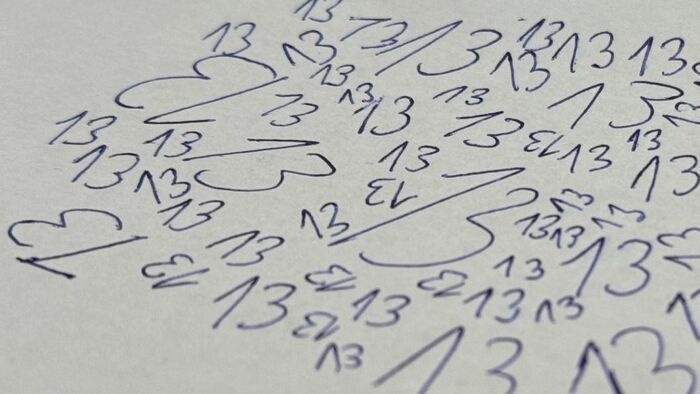 13
13 13 13 13 13 13 13
13 13 13
13 13 13 13 13 13 13
13 13 13 13 13 13 13
13 13 13 13 13
13 13 13 13 13 13
13 13 13 13 13 13
13 13 13 13 13 13
13 13 13 13 13 13
13 13 13